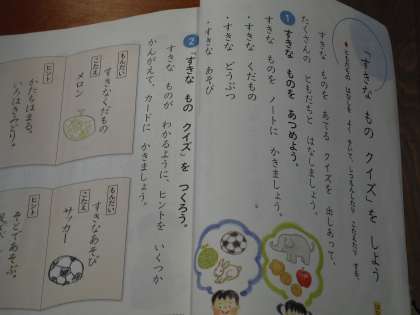 「すきな もの クイズ」を しよう
ともだちの はなしを よく きいて、しつもんしたり こたえたり する。
すきな ものを あてる クイズを 出しあって、
たくさんの ともだちと はなしましょう。
1 すきな ものを あつめよう。
すきな ものを ノートに かきましょう。
・すきな くだもの
・すきな どうぶつ
・すきな あそび
2 「すきな もの クイズ」を つくろう。
すきな ものが わかるように、ヒントを いくつか
かんがえて、カードに かきましょう。
もんだい
すきなくだもの
こたえ
メロン
ヒント
かたちはまる。
いろはきみどり。
もんだい
すきなあそび
こたえ
サッカー
ヒント
そとであそぶ。